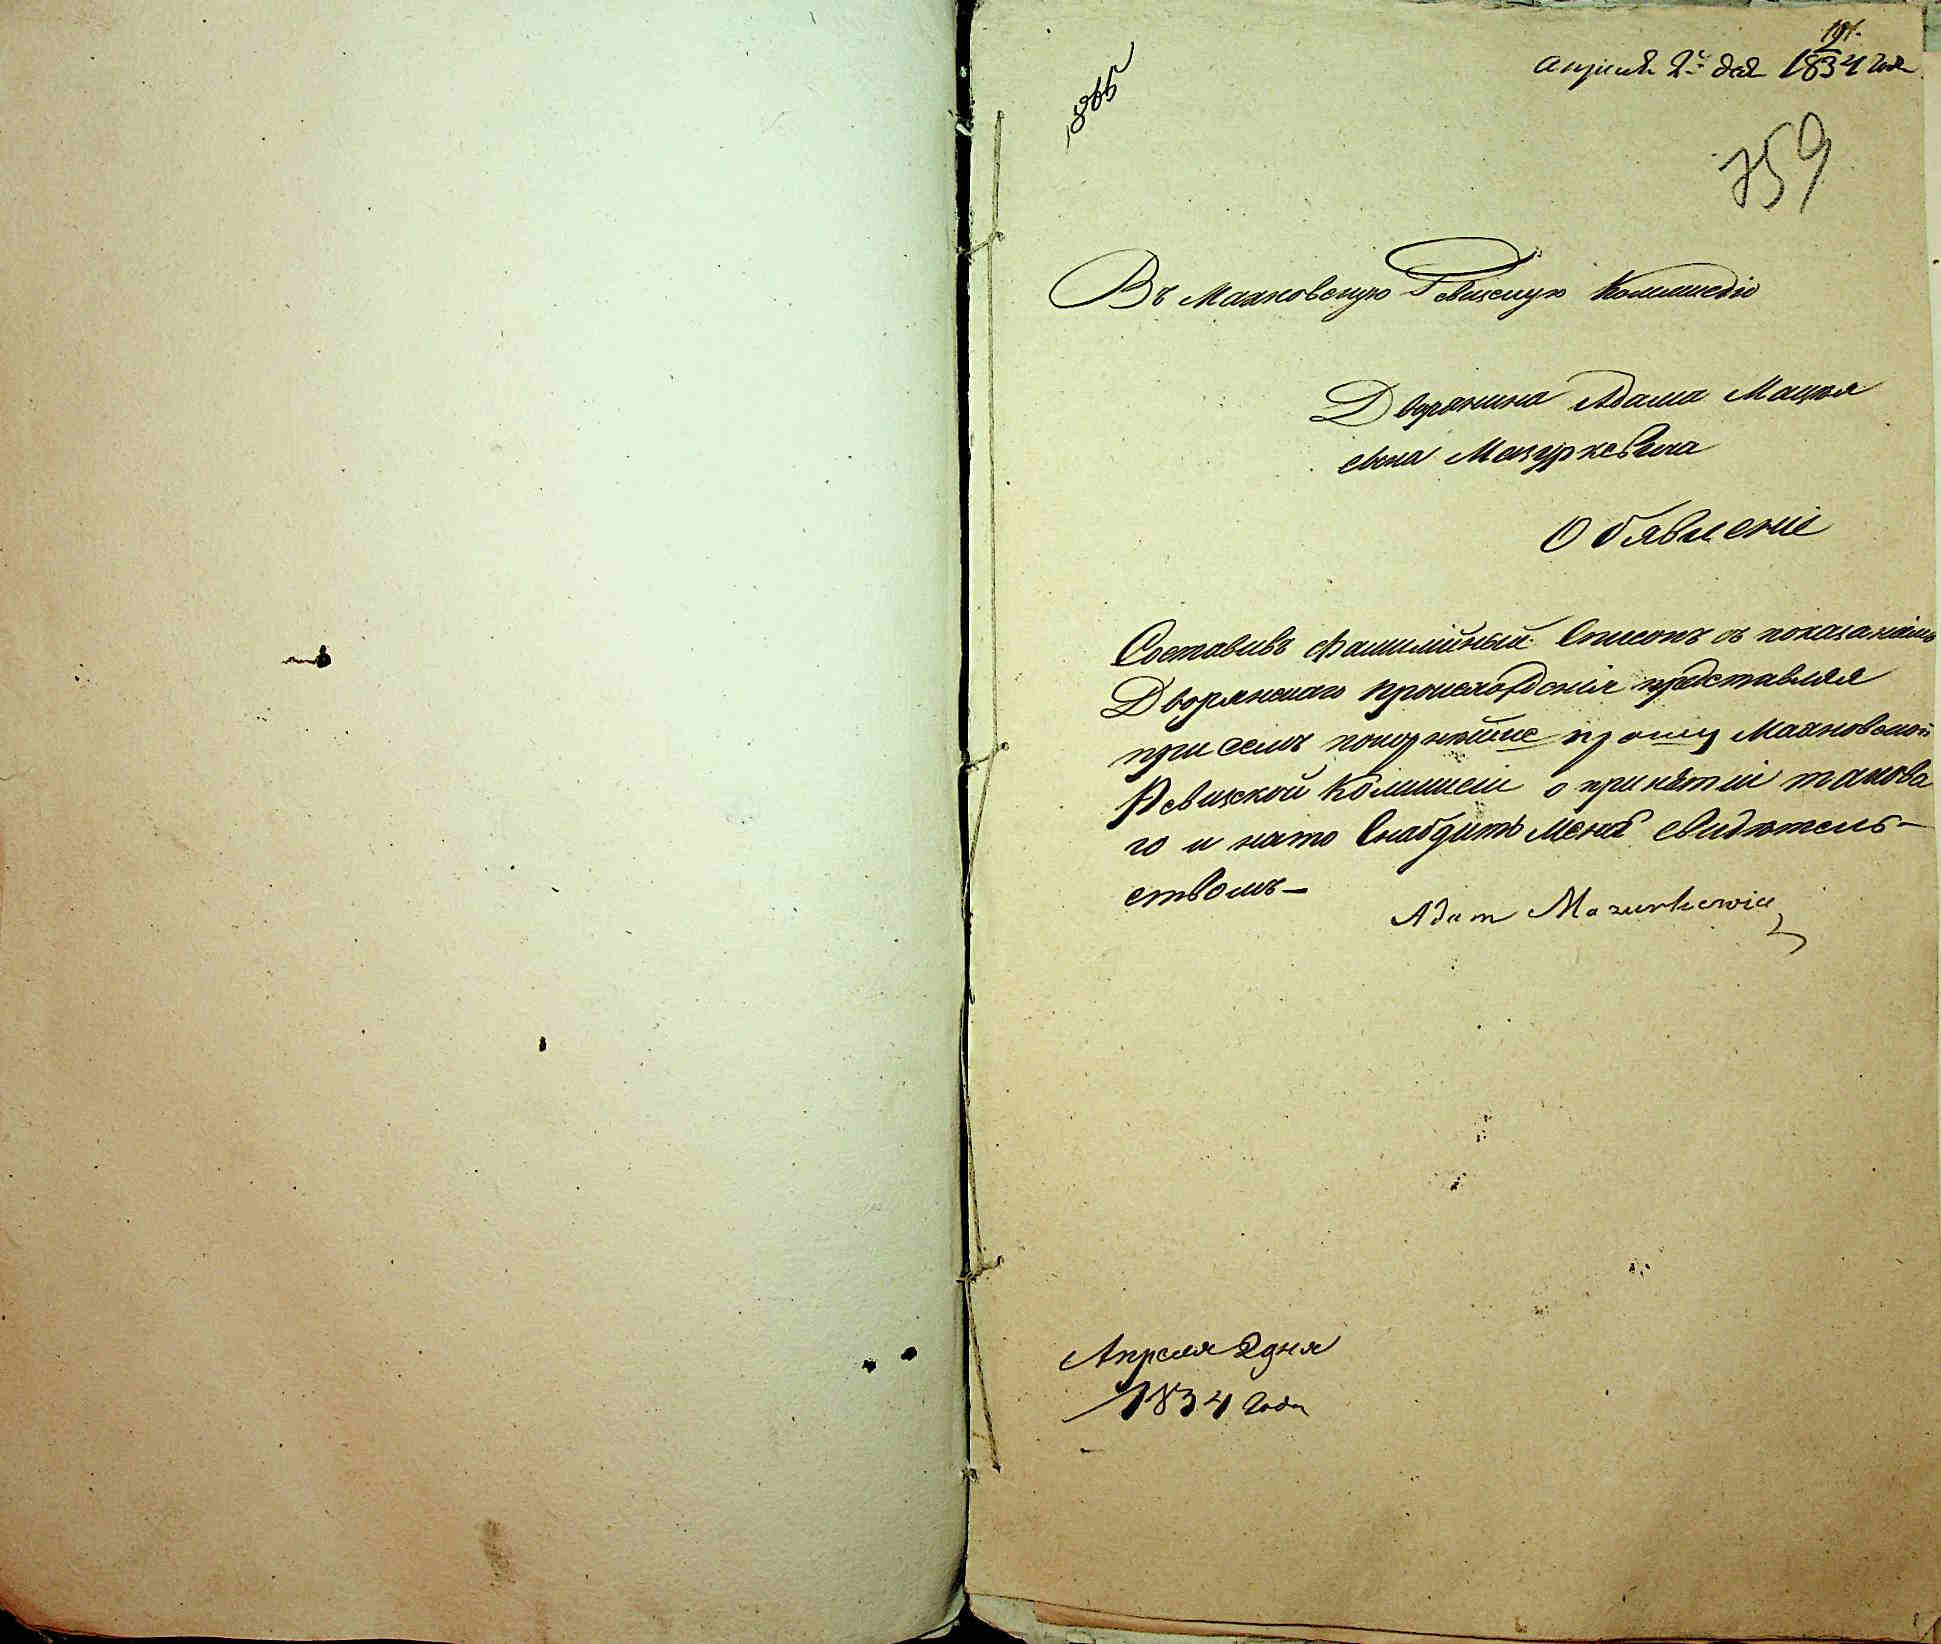 191.
Апреля 2го дня 1834 года
759
Въ Маяковскую Ревизскую Коммисію
Дворянина Адама Мацѣя
сына Мазуркевича
Обявленіе
Составивъ Фамилійный Списокъ съ показаніемъ
Дворянскаго происхожденія представляя
при семъ покорнѣйше прошу Маяковской
Ревизской Коммисіи о принятіи такова
го и нато Снабдить меня свидѣтель-
ствомъ-
Adam Mazurkewicz
Апреля 2 дня
1834 года